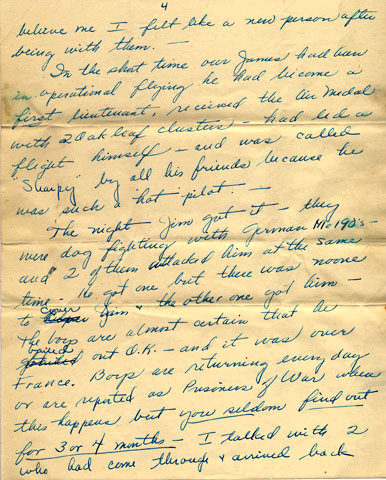 4
believe me I felt like a new person after
being with them. —
In the short time our James had been
in operational flying he had become a
first lieutenant, received the Air Medal
with 2 oak leaf clusters - had led a
flight himself - and was called
"Sharpy" by all his friends because he
was such a hot pilot. —
The night Jim got it - they
were dog fighting with German Me 190's -
and 2 of them attacked him at the same
time - He got one but there was noone
to cover Jim & the other one got him -
The boys are almost certain that he
bailed out O.K. - and it was over
France. Boys are returning every day
or are reported as Prisoners of War when
this happens but you seldom find out
for 3 or 4 months - I talked with 2
who had come through & arrived back